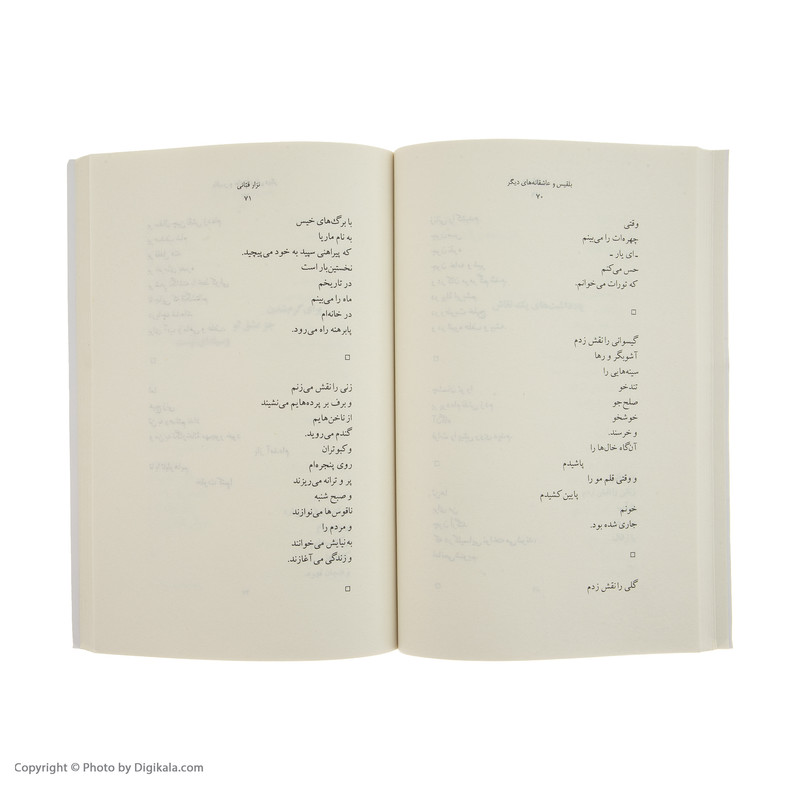 بلقیس و عاشقانه‌های دیگر
۷۰
وقتی
چهره‌ات را می‌بینم
ـ ای یار ـ
حس می‌کنم
که تورات می‌خوانم.
□
گیسوانی را نقش زدم
آشوبگر و رها
سینه‌هایی را
تندخو
صلح‌جو
خوشخو
و خرسند.
آن‌گاه خال‌ها را
پاشیدم
و وقتی قلم مو را
پایین کشیدم
خونم
جاری شده بود.
□
گلی را نقش زدم
نزار قبّانی
۷۱
با برگ‌های خیس
به نام ماریا
که پیراهنی سپید به خود می‌پیچید.
نخستین‌بار است
در تاریخم
ماه را می‌بینم
در خانه‌ام
پابرهنه راه می‌رود.
□
زنی را نقش می‌زنم
و برف بر پرده‌هایم می‌نشیند
از ناخن‌هایم
گندم می‌روید.
و کبوتران
روی پنجره‌ام
پر و ترانه می‌ریزند
و صبح شنبه
ناقوس‌ها می‌نوازند
و مردم را
به نیایش می‌خوانند
و زندگی می‌آغازند.
□
Copyright © Photo by Digikala.com